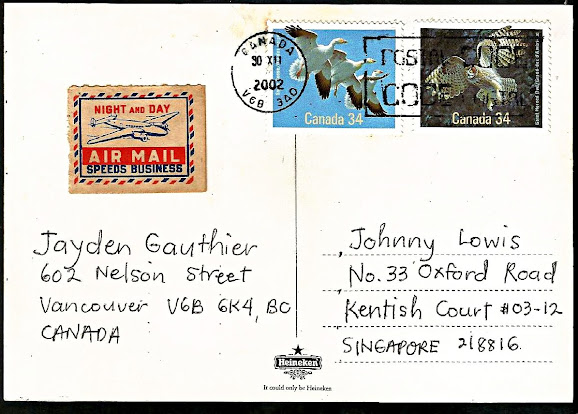 CANADA
30 XII
2002
V6B 3A0
POSTAL CODE
Canada 34
Canada 34
NIGHT AND DAY
AIR MAIL
SPEEDS BUSINESS
Jayden Gauthier
602 Nelson Street
Vancouver V6B 6K4, BC
CANADA
Johnny Lowis
No. 33 Oxford Road
Kentish Court #03-12
SINGAPORE 218816
Heineken
It could only be Heineken